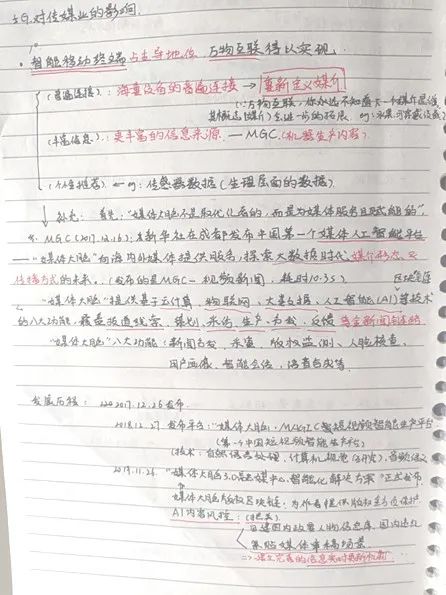 5G.对传媒业的影响.
1°
·智能移动终端占主导地位,万物互联得以实现.
(普遍连接):海量设备的普遍连接→重新定义媒介
(:万物互联,你永远不知最大一个媒介是谁
其概念(媒介)会进一步的拓展. eg:水果可穿戴设备)
(丰富信息):更丰富的信息来源.—MGC.(机器生产内容).
(个性推荐) ← eg:传感器数据(生理层面的数据).
↓补充: 首先:"媒体大脑不是取代记者的,而是为媒体服务且赋能的",
MGC(2017.12.26):由新华社在成都发布中国第一个媒体人工智能平台
—"媒体大脑"向海内外媒体提供服务,探索大数据时代媒介形态及
传播方式的未来.(发布首条MGC—视频新闻,耗时10.3s)
"媒体大脑"提供基于云计算、物联网、大数据、人工智能(AI)等技术
的八大功能,覆盖报道线索、策划、采访、生产、分发、反馈等全新闻链路
"媒体大脑"八大功能:新闻分发、采蜜、版权监测、人脸核查、
用户画像、智能会话、语音合成等.
发展历程: 2017.12.26发布.
2018.12.27 发布平台:"媒体大脑·MAGIC智能短视频智能生产平台
(第一个中国短视频智能生产平台)
(技术:自然语言处理,计算机视觉,音频语义
2019.11.26. "媒体大脑3.0融媒中心智能化解决方案"正式发布
媒体大脑版权区块链:为作者提供版权
AI内容风控:(把关)
自建国内政要人物信息库,国内违禁
策略媒体审稿场景.